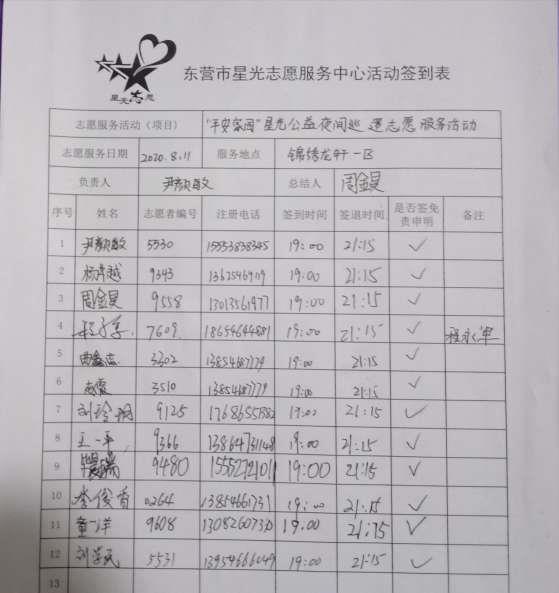 星光志愿
东营市星光志愿服务中心活动签到表
志愿服务活动（项目） "平安家园"星光公益夜间巡逻志愿服务活动
志愿服务日期 2020.8.11 服务地点 锦绣龙轩一区
负责人 尹毅敏 总结人 周金昊
序号 姓名 志愿者编号 注册电话 签到时间 签退时间 是否签免责申明 备注
1 尹毅敏 5530 15553838345 19:00 21:15 ✓
2 杨卓越 9343 19:00 21:15 ✓
3 周金昊 9558 13013561977 19:00 21:15 ✓
4 7609 18654644881 19:00 21:15 ✓
5 3302 13854687779 19:00 21:15 ✓
6 3510 13854687779 19:00 21:15 ✓
7 9125 17686551882 19:02 21:15 ✓
8 王一平 9366 13864731148 19:00 21:15 ✓
9 9480 15552721011 19:00 21:15 ✓
10 李俊香 0264 13854661731 19:00 21:15 ✓
11 董一洋 9608 13082607330 19:00 21:15 ✓
12 刘学民 5531 13954666049 19:00 21:15 ✓
13